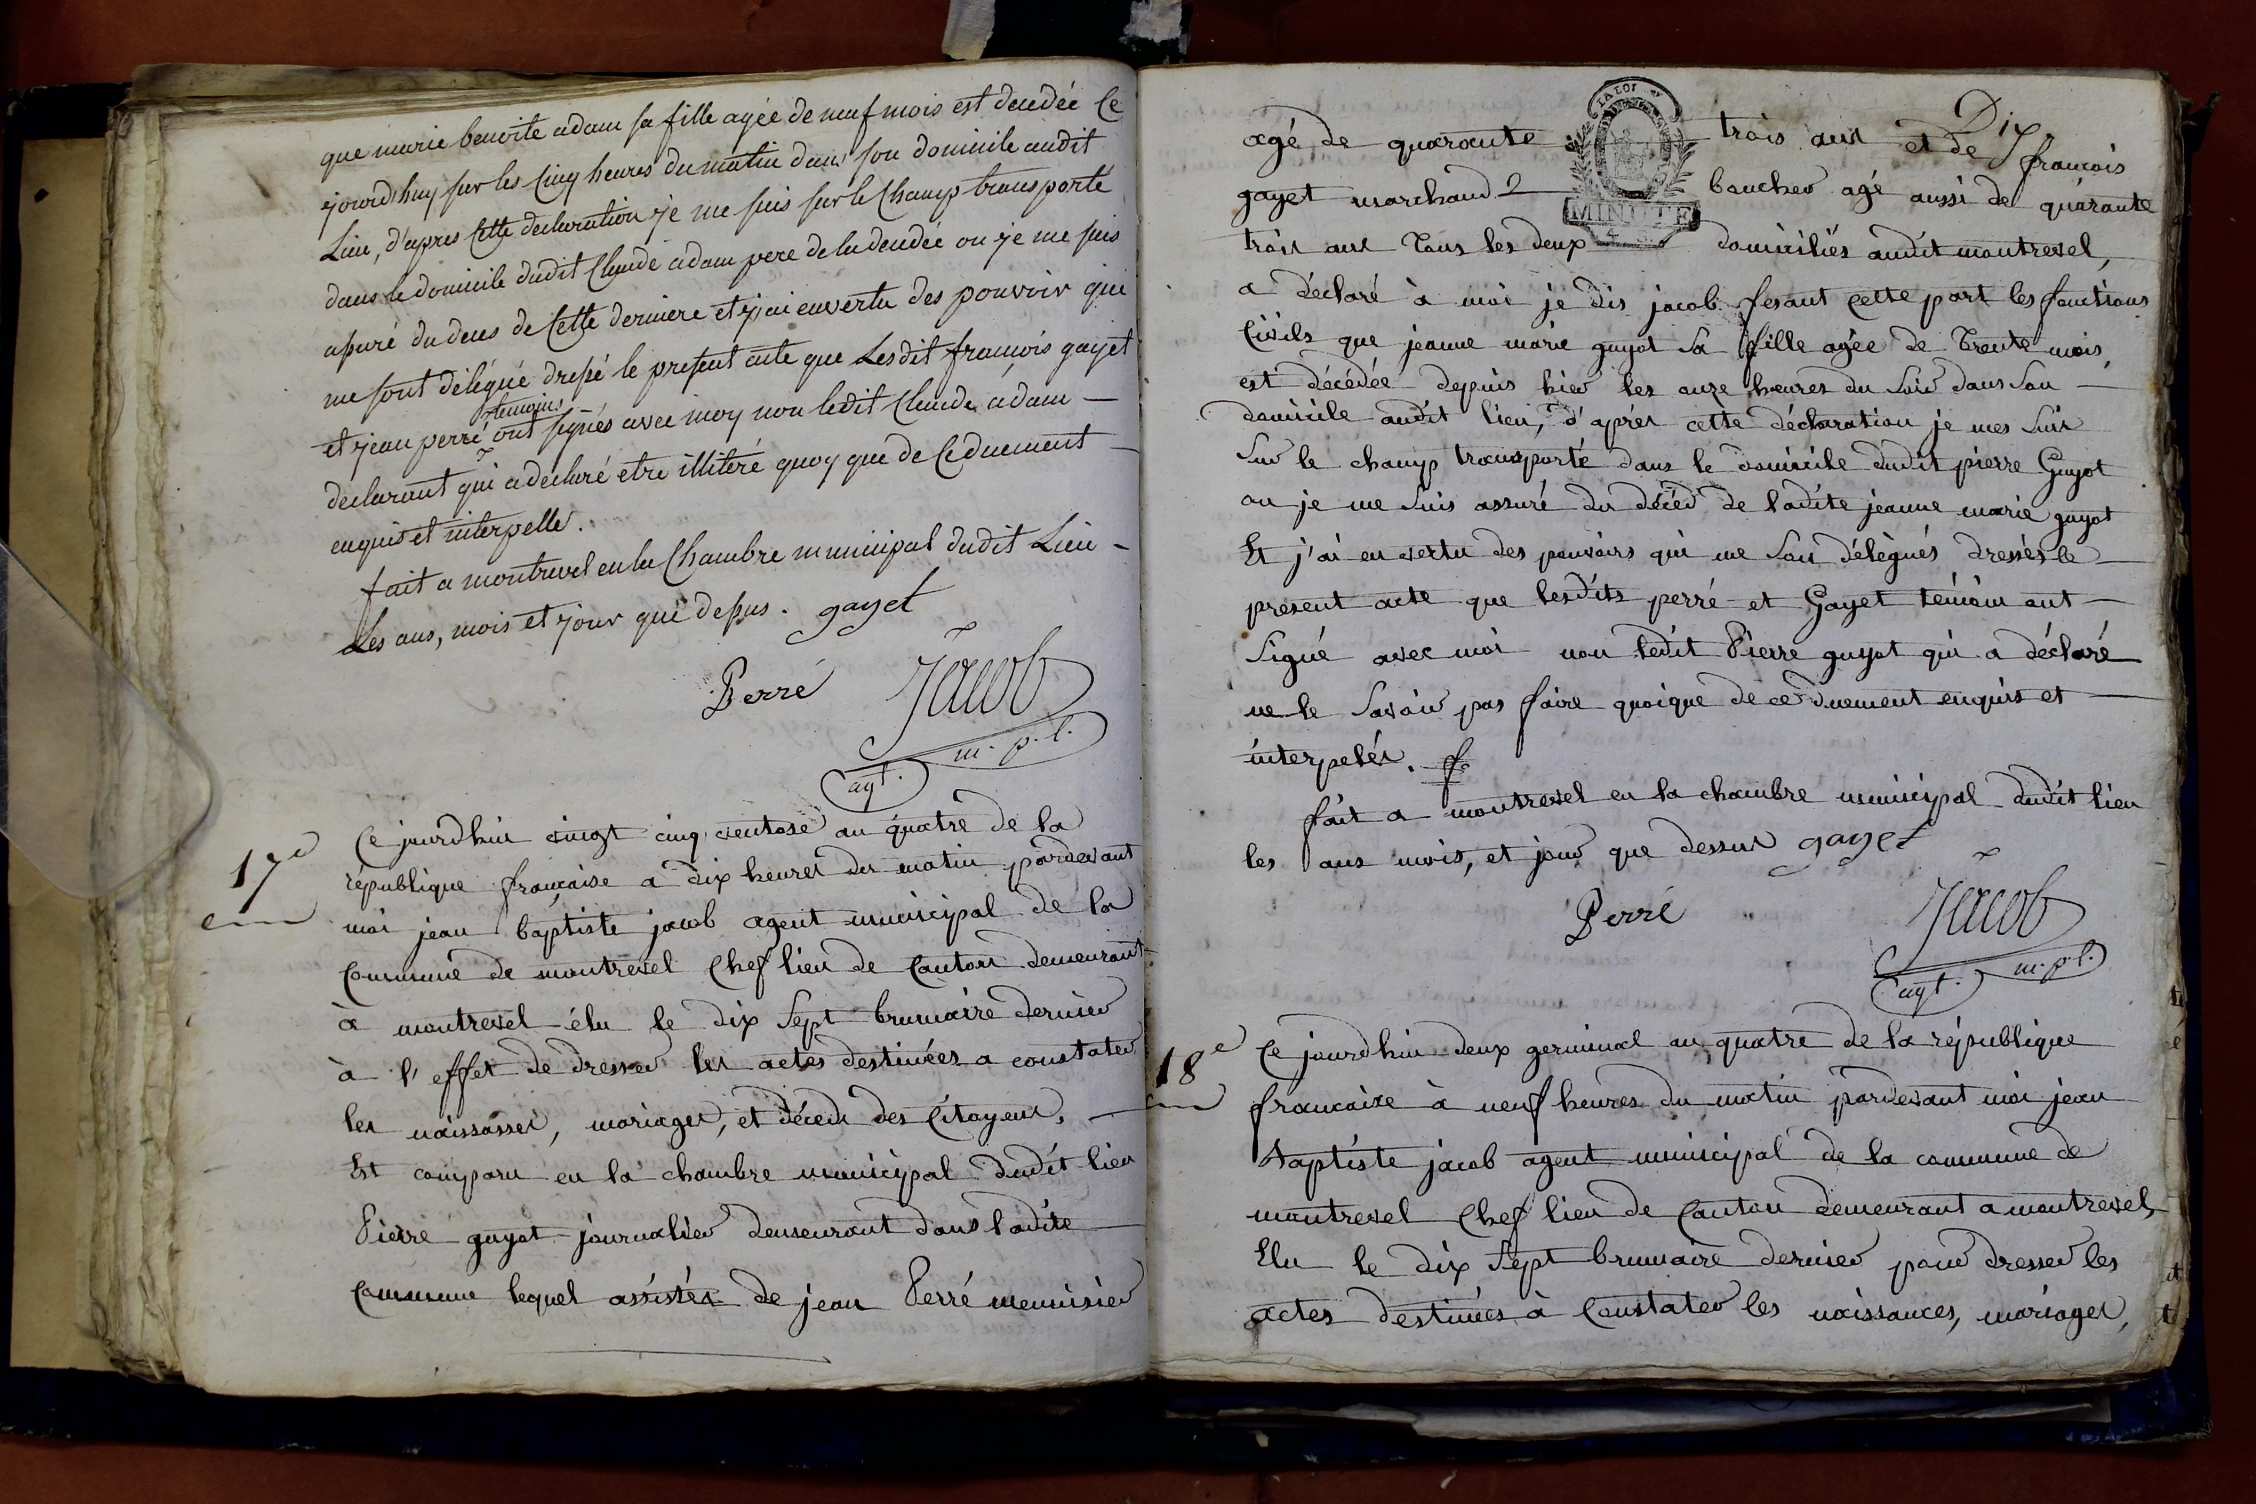 que marie benoite adam sa fille agée de neuf mois est decedée Ce
ejourd'huy sur les Cinq heures du matin dans son domicile audit
Lieu, d'apres Cette declaration je me suis sur le Champ transporté
dans le domicile dudit Claude adam pere de la decedée ou je me suis
assuré du deces de Cette derniere et j'ai en vertu des pouvoir qui
me sont délégué dressé le present acte que Lesdit françois gayet
et jean perré temoins ont signés avec moy non ledit Claude adam
déclarant qui a déclaré etre illiteré quoy que de Ce duement
enquis et interpellé.
fait a montrevel en la Chambre municipal dudit Lieu
Les ans, mois et jour que dessus. gayet
Perré Jacob
agt. m. p. l.
17e Ce jourdhui vingt cinq ventose an quatre de la
république française a dix heures du matin pardevant
moi jean baptiste jacob agent municipal de la
Commune de montrevel Chef lieu de Canton demeurant
à montrevel élu le dix Sept brumaire dernier
à l'effet de dresser les actes destinées a constater
les naissasses, mariages, et déceds des Citoyens,
Est comparu en la chambre municipal dudit lieu
Pierre guyot journalier demeurant dans ladite
Commune lequel assistés de jean Perré menuisier
Dix
agé de quarante trois ans et de françois
gayet marchand boucher agé aussi de quarante
LA LOI
MINUTE
trois ans Tous les deux domiciliés audit montrevel,
a déclaré à moi je dis jacob fesant cette part les fonctions
Civils que jeanne marie guyot sa fille agée de Trente mois,
est décédée depuis hier les onze heures du Soir dans Son
domicile audit lieu, d'aprés cette déclaration je mes Suis
Sur le champ transporté dans le domicile dudit pierre Guyot
ou je me Suis assuré du décéd de ladite jeanne marie guyot
Et j'ai en vertu des pouvoirs qui me Son délègués dressés le
present acte que lesdits perré et Gayet témoin ont
Signé avec moi non ledit Pierre guyot qui a déclaré
ne le Savoir pas faire quoique de ce duement enquis et
interpelés. f
fait a montrevel en la chambre municipal dudit lieu
les ans mois, et jour que dessus gayet
Perré Jacob
agt. m. p. l.
18e Ce jourdhui deux germinal an quatre de la république
française à neuf heures du matin pardevant moi jean
Baptiste jacob agent municipal de la commune de
montrevel Chef lieu de Canton demeurant a montrevel,
Elu le dix Sept brumaire dernier pour dresser les
actes destinées à Constater les naissances, mariages,